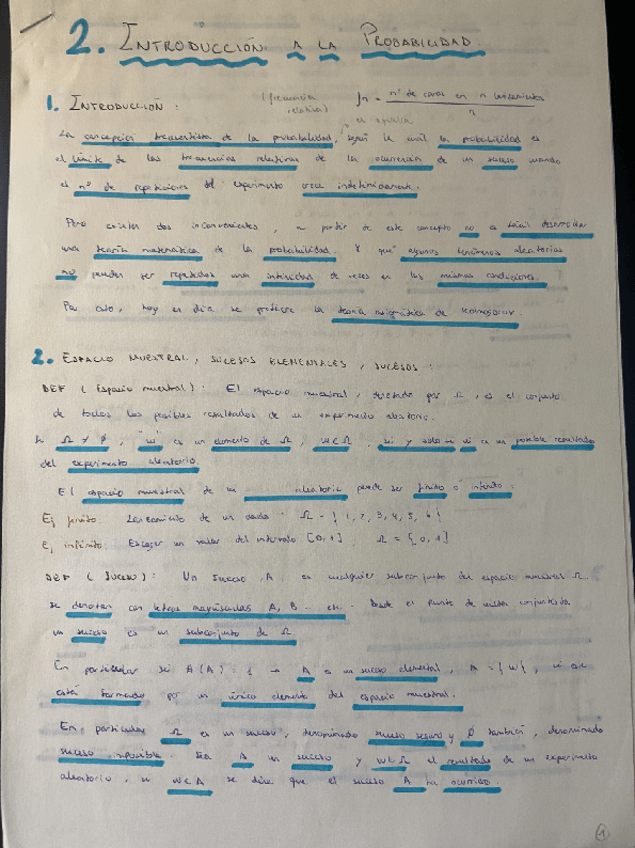 2. INTRODUCCIÓN A LA PROBABILIDAD
1. INTRODUCCIÓN :
(frecuencia relativa) fn = nº de caras en n lanzamientos / n
La concepción frecuentista de la probabilidad, según la cual la probabilidad es
el límite de las frecuencias relativas de la ocurrencia de un suceso cuando
el nº de repeticiones del experimento crece indefinidamente.
Pero existen dos inconvenientes, a partir de este concepto no es fácil desarrollar
una teoría matemática de la probabilidad. Y que algunos fenómenos aleatorios
no pueden ser repetidos una infinidad de veces en las mismas condiciones.
Por esto, hoy en día se prefiere la teoría axiomática de Kolmogorov.
2. ESPACIO MUESTRAL, SUCESOS ELEMENTALES, SUCESOS :
DEF (Espacio muestral) : El espacio muestral, denotado por Ω, es el conjunto
de todos los posibles resultados de un experimento aleatorio.
Si Ω ≠ ∅, "w" es un elemento de Ω, w ∈ Ω, si y solo si w es un posible resultado
del experimento aleatorio.
El espacio muestral de un aleatorio puede ser finito o infinito.
Ej finito: Lanzamiento de un dado Ω = { 1, 2, 3, 4, 5, 6 }
Ej infinito: Escoger un valor del intervalo [0, 1] Ω = [0, 1]
DEF (Suceso) : Un suceso, A es cualquier subconjunto del espacio muestral Ω.
se denotan con letras mayúsculas A, B... etc. Desde el punto de vista conjuntista
un suceso es un subconjunto de Ω
En particular si = 1 → A es un suceso elemental, A = {w},
está formado por un único elemento del espacio muestral.
En particular Ω es un suceso, denominado suceso seguro y ∅ también, denominado
suceso imposible. Sea A un suceso y w ∈ Ω el resultado de un experimento
aleatorio, si w ∈ A se dice que el suceso A ha ocurrido.
1